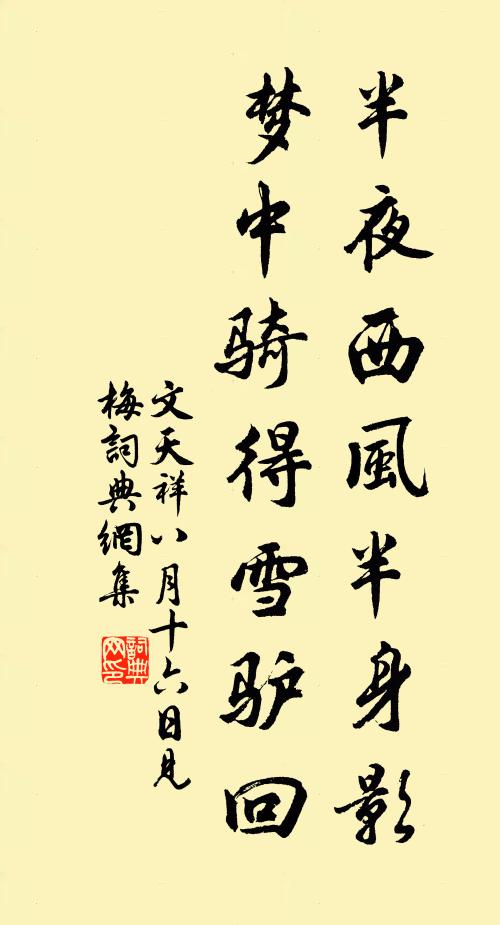 半夜西風半身影
梦中骑得雪驴回
文天祥八月十六日見
梅詞典網集
詞典
网印